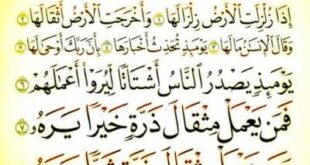 إِذَا زُلْزِلَتِ ٱلْأَرْضُ زِلْزَالَهَا ١ وَأَخْرَجَتِ ٱلْأَرْضُ أَثْقَالَهَا ٢
وَقَالَ ٱلْإِنسَٰنُ مَا لَهَا ٣ يَوْمَئِذٍ تُحَدِّثُ أَخْبَارَهَا ٤ بِأَنَّ رَبَّكَ أَوْحَىٰ لَهَا ٥
يَوْمَئِذٍ يَصْدُرُ ٱلنَّاسُ أَشْتَاتًا لِّيُرَوْا۟ أَعْمَٰلَهُمْ ٦
فَمَن يَعْمَلْ مِثْقَالَ ذَرَّةٍ خَيْرًا يَرَهُۥ ٧